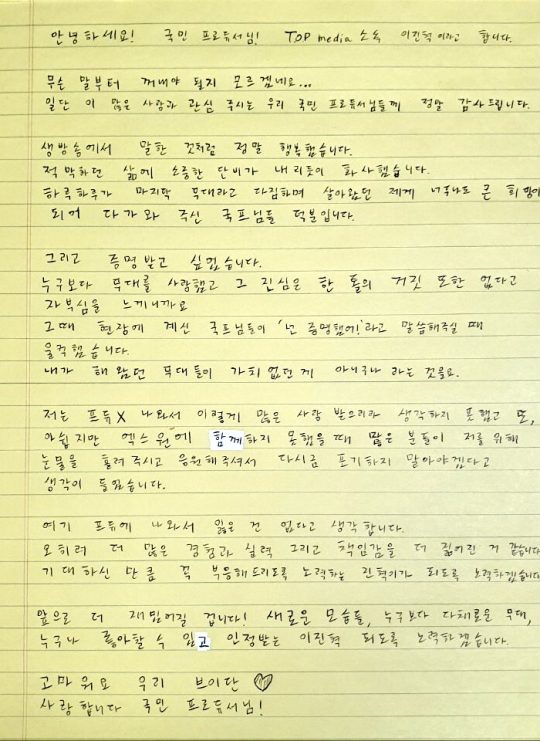 안녕하세요! 국민 프로듀서님! TOP media 소속 이진혁이라고 합니다.
무슨 말부터 꺼내야 될지 모르겠네요...
일단 이 많은 사랑과 관심 주시는 우리 국민 프로듀서님들께 정말 감사드립니다.
생방송에서 말한 것처럼 정말 행복했습니다.
적막하던 삶에 소중한 단비가 내리듯이 화사했습니다.
하루하루가 마지막 무대라고 다짐하며 살아왔던 제게 너무나도 큰 희망이
되어 다가와 주신 국프님들 덕분입니다.
그리고 증명받고 싶었습니다.
누구보다 무대를 사랑했고 그 진심은 한 톨의 거짓 또한 없다고
자부심을 느끼니까요
그때 현장에 계신 국프님들이 '넌 증명했어!'라고 말씀해주실 때
울컥했습니다.
내가 해왔던 무대들이 가치없던게 아니구나 라는 것을요.
저는 프듀X 나와서 이렇게 많은 사랑 받으리라 생각하지 못했고 또,
아쉽지만 엑스원에 함께하지 못했을 때 많은 분들이 저를 위해
눈물을 흘려 주시고 응원해주셔서 다시금 포기하지 말아야겠다고
생각이 들었습니다.
여기 프듀에 나와서 잃은 건 없다고 생각합니다.
오히려 더 많은 경험과 실력 그리고 책임감을 더 짊어진 거 같습니다
기대하신 만큼 꼭 부응해드리도록 노력하는 진혁이가 되도록 노력하겠습니다
앞으로 더 재밌어질 겁니다! 새로운 모습들, 누구보다 다채로운 무대,
누구나 좋아할 수 있고 인정받는 이진혁 되도록 노력하겠습니다.
고마워요 우리 브이단 ♡
사랑합니다 국민 프로듀서님!